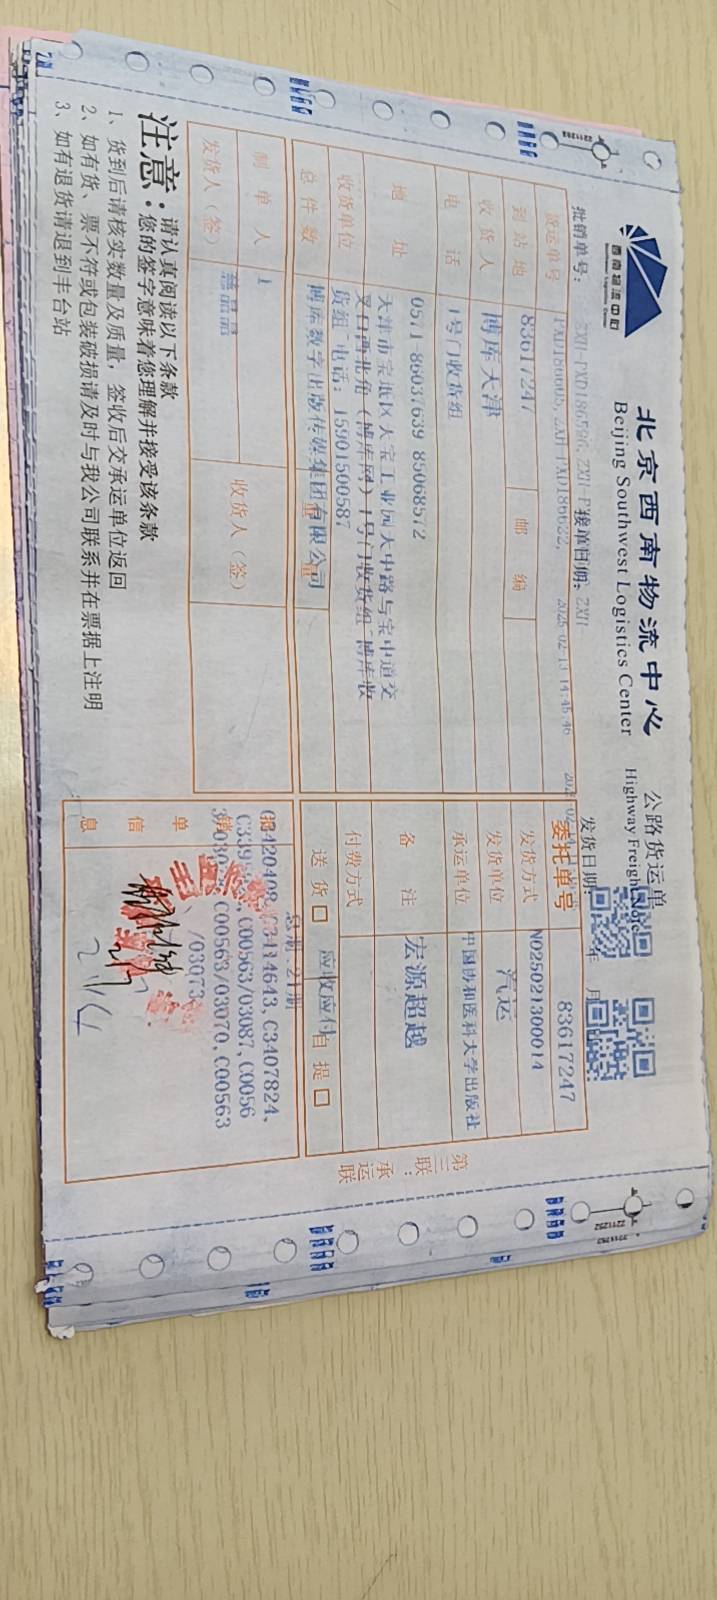 西南物流中心
北京西南物流中心
Beijing Southwest Logistics Center
公路货运单
Highway Freight Note
批销单号:
接单日期:
2025-02-13 14:45:46
发货日期:
年 月
货运单号
83617247
委托单号
83617247
到站地
博库天津
邮编
发货方式
N025021300014
汽运
收货人
1号门收货组
发货单位
中国协和医科大学出版社
电话
0571-86037639 85068572
承运单位
宏源超越
地址
天津市宝坻区天宝工业园天中路与宝中道交
叉口西北角(博库网)1号门收货组 博库收
货组 电话:15901500587
备注
收货单位
博库数字出版传媒集团有限公司
付费方式
应收应付
总件数
1
送货□
自提□
制单人
收货人(签)
发货人(签)
总期-21期
C3420408, C3414643, C3407824,
C00563/03087, C0056
C00563/03070, C00563
/03073
单
信
息
2/14
第三联:承运联
注意:
请认真阅读以下条款
您的签字意味着您理解并接受该条款
1、货到后请核实数量及质量,签收后交承运单位返回
2、如有货、票不符或包装破损请及时与我公司联系并在票据上注明
3、如有退货请退到丰台站